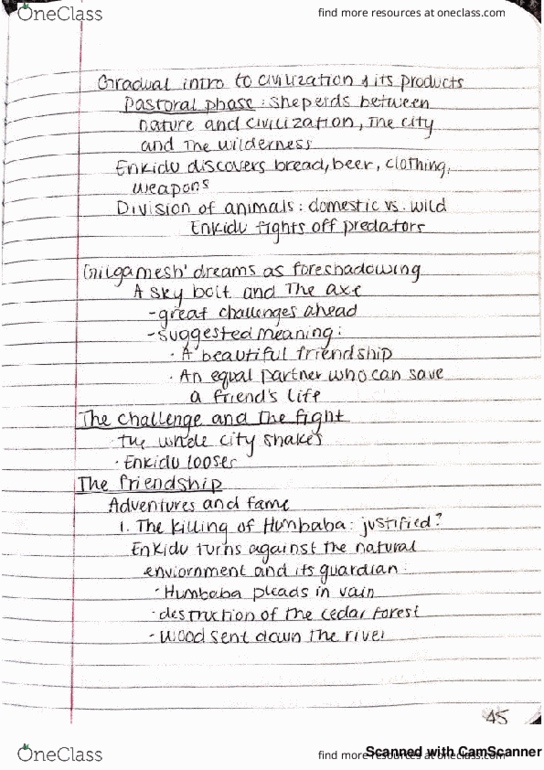 OneClass
find more resources at oneclass.com
Gradual intro to civilization & its products
Pastoral phase: sheperds between
nature and civilization, The city
and The wilderness
Enkidu discovers bread, beer, clothing,
weapons
Division of animals: domestic vs. wild
Enkidu fights off predators
Gilgamesh' dreams as foreshadowing
A sky bolt and The axe
-great challenges ahead
-suggested meaning:
· A beautiful friendship
· An equal partner who can save
a friend's life
The challenge and the fight
· the whole city shakes
· Enkidu looses
The friendship
Adventures and fame
1. The killing of Humbaba: justified?
Enkidu turns against the natural
enviornment and its guardian:
· Humbaba pleads in vain
· destruction of the cedar forest
- wood sent down the river
45
OneClass
find more resources at oneclass.com
Scanned with CamScanner